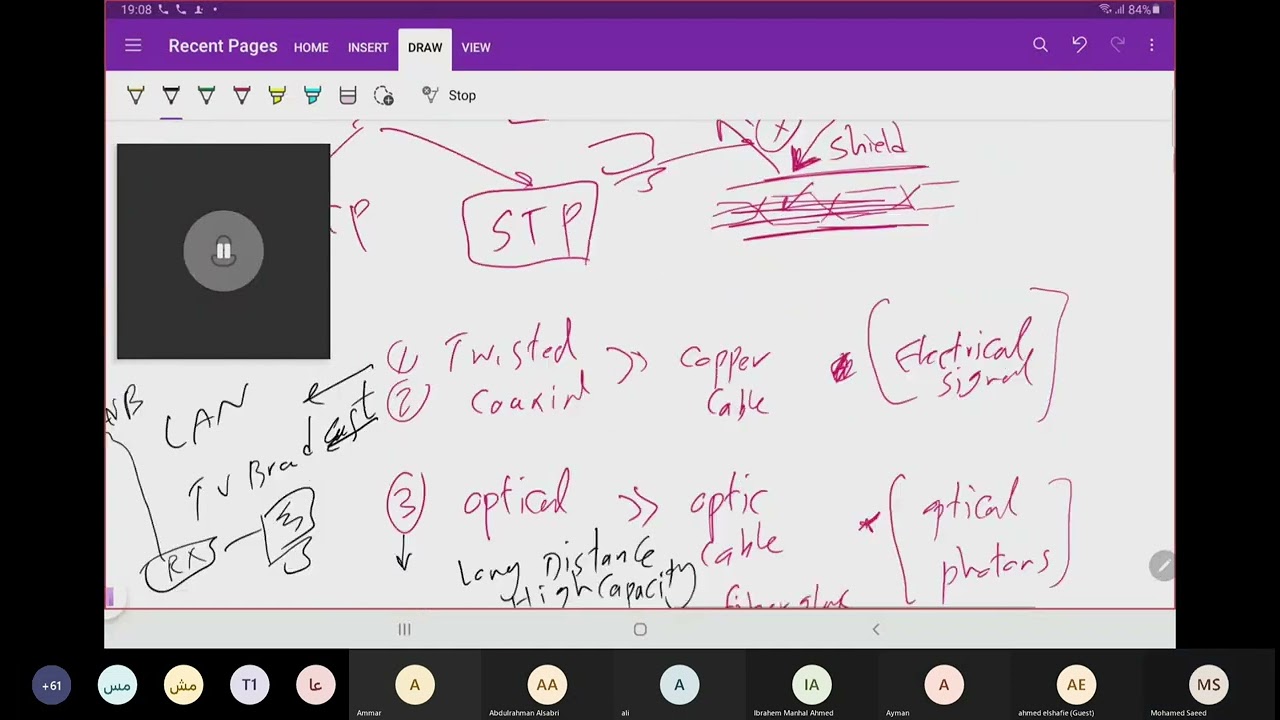 19:08
84%
Recent Pages HOME INSERT DRAW VIEW
Stop
Shield
TP
STP
① Twisted >> Copper Cable * [Electrical signal]
② Coaxial
LAN
TV Broadcast
RX
③ optical >> optic Cable * [optical photons]
Long Distance
High Capacity
+61
مس
مش
T1
عا
A
AA
A
IA
A
AE
MS
Ammar
Abdulrahman Alsabri
ali
Ibrahem Manhal Ahmed
Ayman
ahmed elshafie (Guest)
Mohamed Saeed